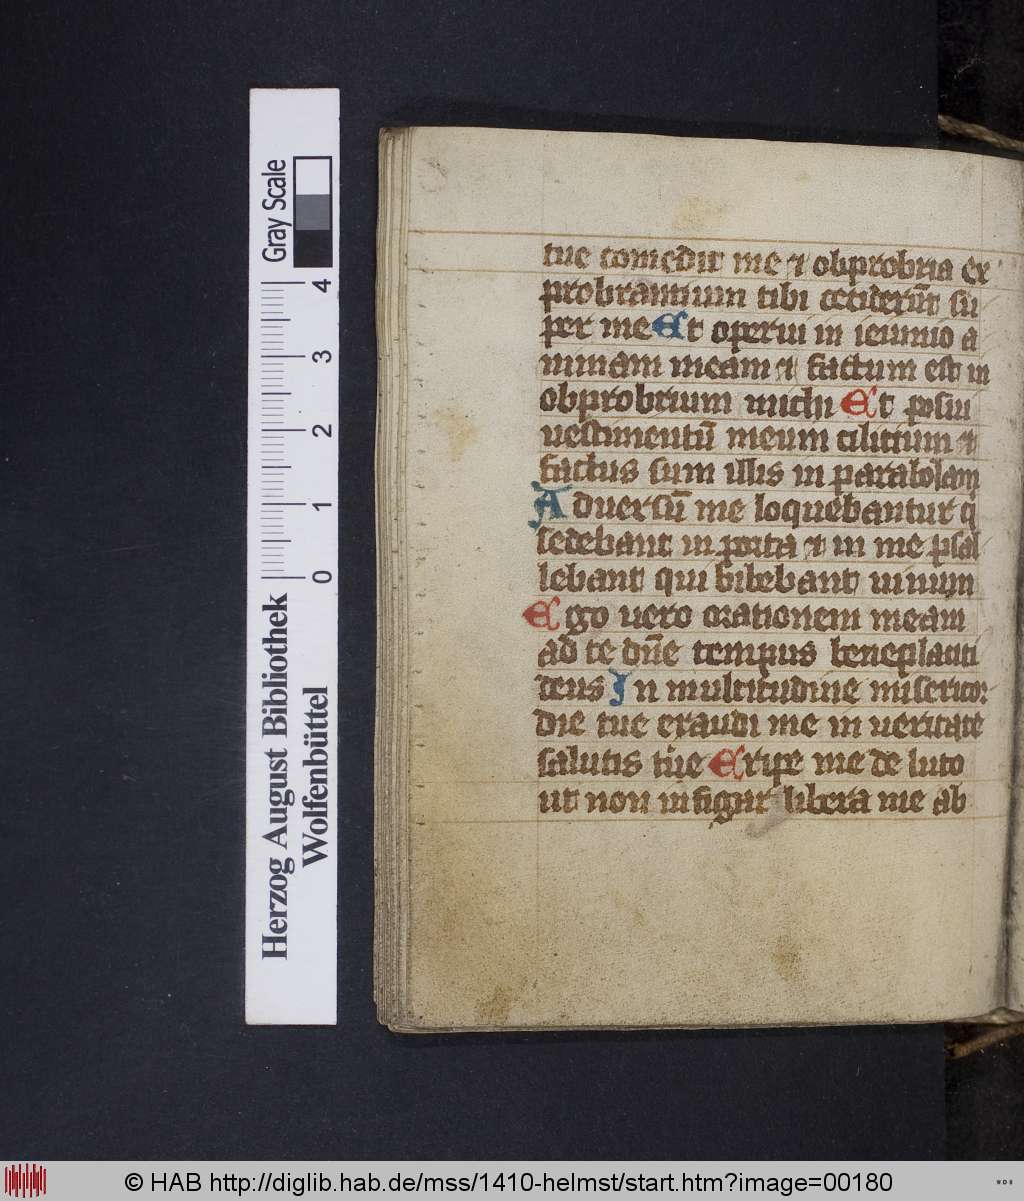 tue comedit me ⁊ obprobria ex
probrantium tibi ceciderūt su
per me Et operui in ieiunio a
nimam meam ⁊ factum est in
obprobrium michi Et posui
vestimentū meum cilicium ⁊
factus sum illis in parabolam
Aduersū me loquebantur q
sedebant in porta ⁊ in me psal
lebant qui bibebant uinum
Ego uero orationem meam
ad te dn̄e tempus beneplaciti
deus In multitudine misericor
die tue exaudi me in ueritate
salutis tue Eripe me de luto
ut non infigar libera me ab
Gray Scale
4
3
2
1
0
Herzog August Bibliothek
Wolfenbüttel
© HAB http://diglib.hab.de/mss/1410-helmst/start.htm?image=00180